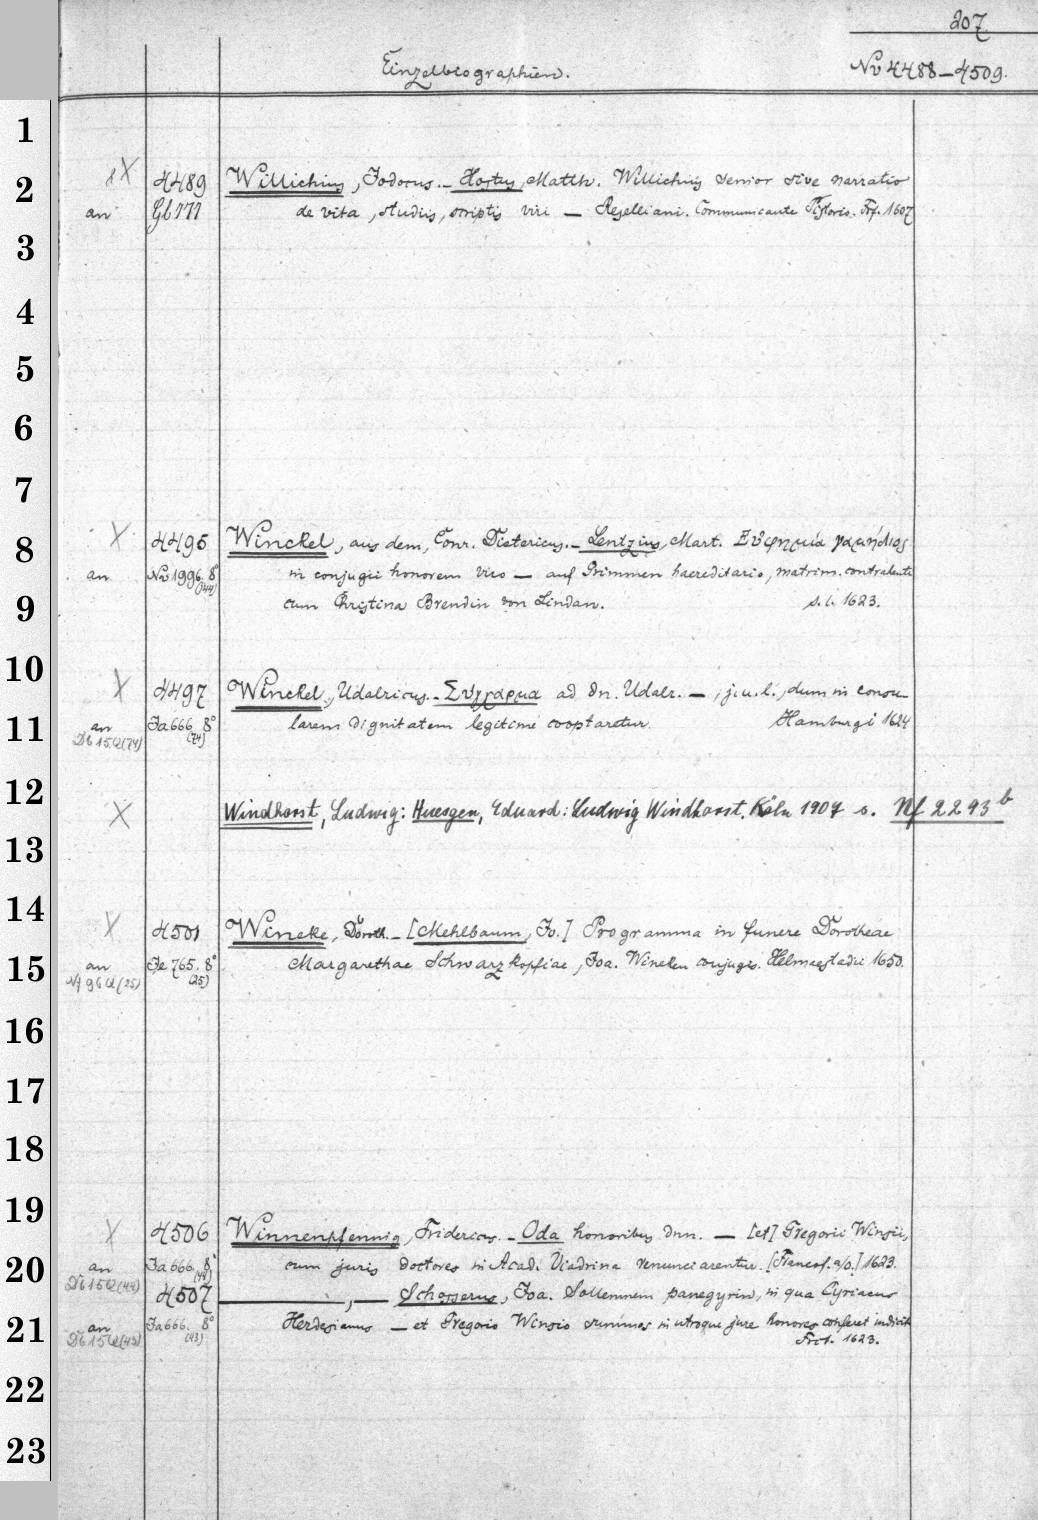 207
Einzelbiographien.
No 4488–4509.
1
2
3
4
5
6
7
8
9
10
11
12
13
14
15
16
17
18
19
20
21
22
23
X 4489 Willichius, Jodocus. – Hostus, Matth. Willichius senior sive narratio
an Gb 177 de vita, studiis, scriptis viri — Reselliani. Communicante Frf. 1607
X 4495 Winckel, aus dem, Conr. Dietericus. – Lentzius, Mart. Εὐφημία γαμήλιος
an No 1996. 8° (44) in conjugii honorem viro — auf Brimmen haereditario, matrim. contrahenti
cum Christina Brendin von Lindau. s. l. 1623.
X 4497 Winckel, Udalricus. – Σύγχαρμα ad dn. Udalr. —, j. u. l., dum in consu-
an Ja 666. 8° (74) larem dignitatem legitime cooptaretur. Hamburgi 1624
Db 15Q (74)
X Windhorst, Ludwig: Huesgen, Eduard: Ludwig Windhorst. Köln 1907 s. Nf 2293 b
X 4501 Wineke, Doroth. – [Mehlbaum, Jo.] Programma in funere Dorotheae
an Je 765. 8° (25) Margarethae Schwarzkopfiae, Joa. Wineken conjugis. Helmaestadii 1650.
Nf 96 Q (25)
X 4506 Winnenpfennig, Fridericus. – Oda honoribus dnn. — [et] Gregorii Winsii,
an Ja 666. 8° (44) cum juris doctores in Acad. Viadrina renunciarentur. [Francof. a/o.] 1623.
Db 15Q (44)
4507 —, — Schosserus, Joa. Sollemnem panegyrin, in qua Cyriacus
an Ja 666. 8° (43) Herdesianus — et Gregorio Winsio summos in utroque jure honores conferet indicit
Db 15Q (43) Frct. 1623.